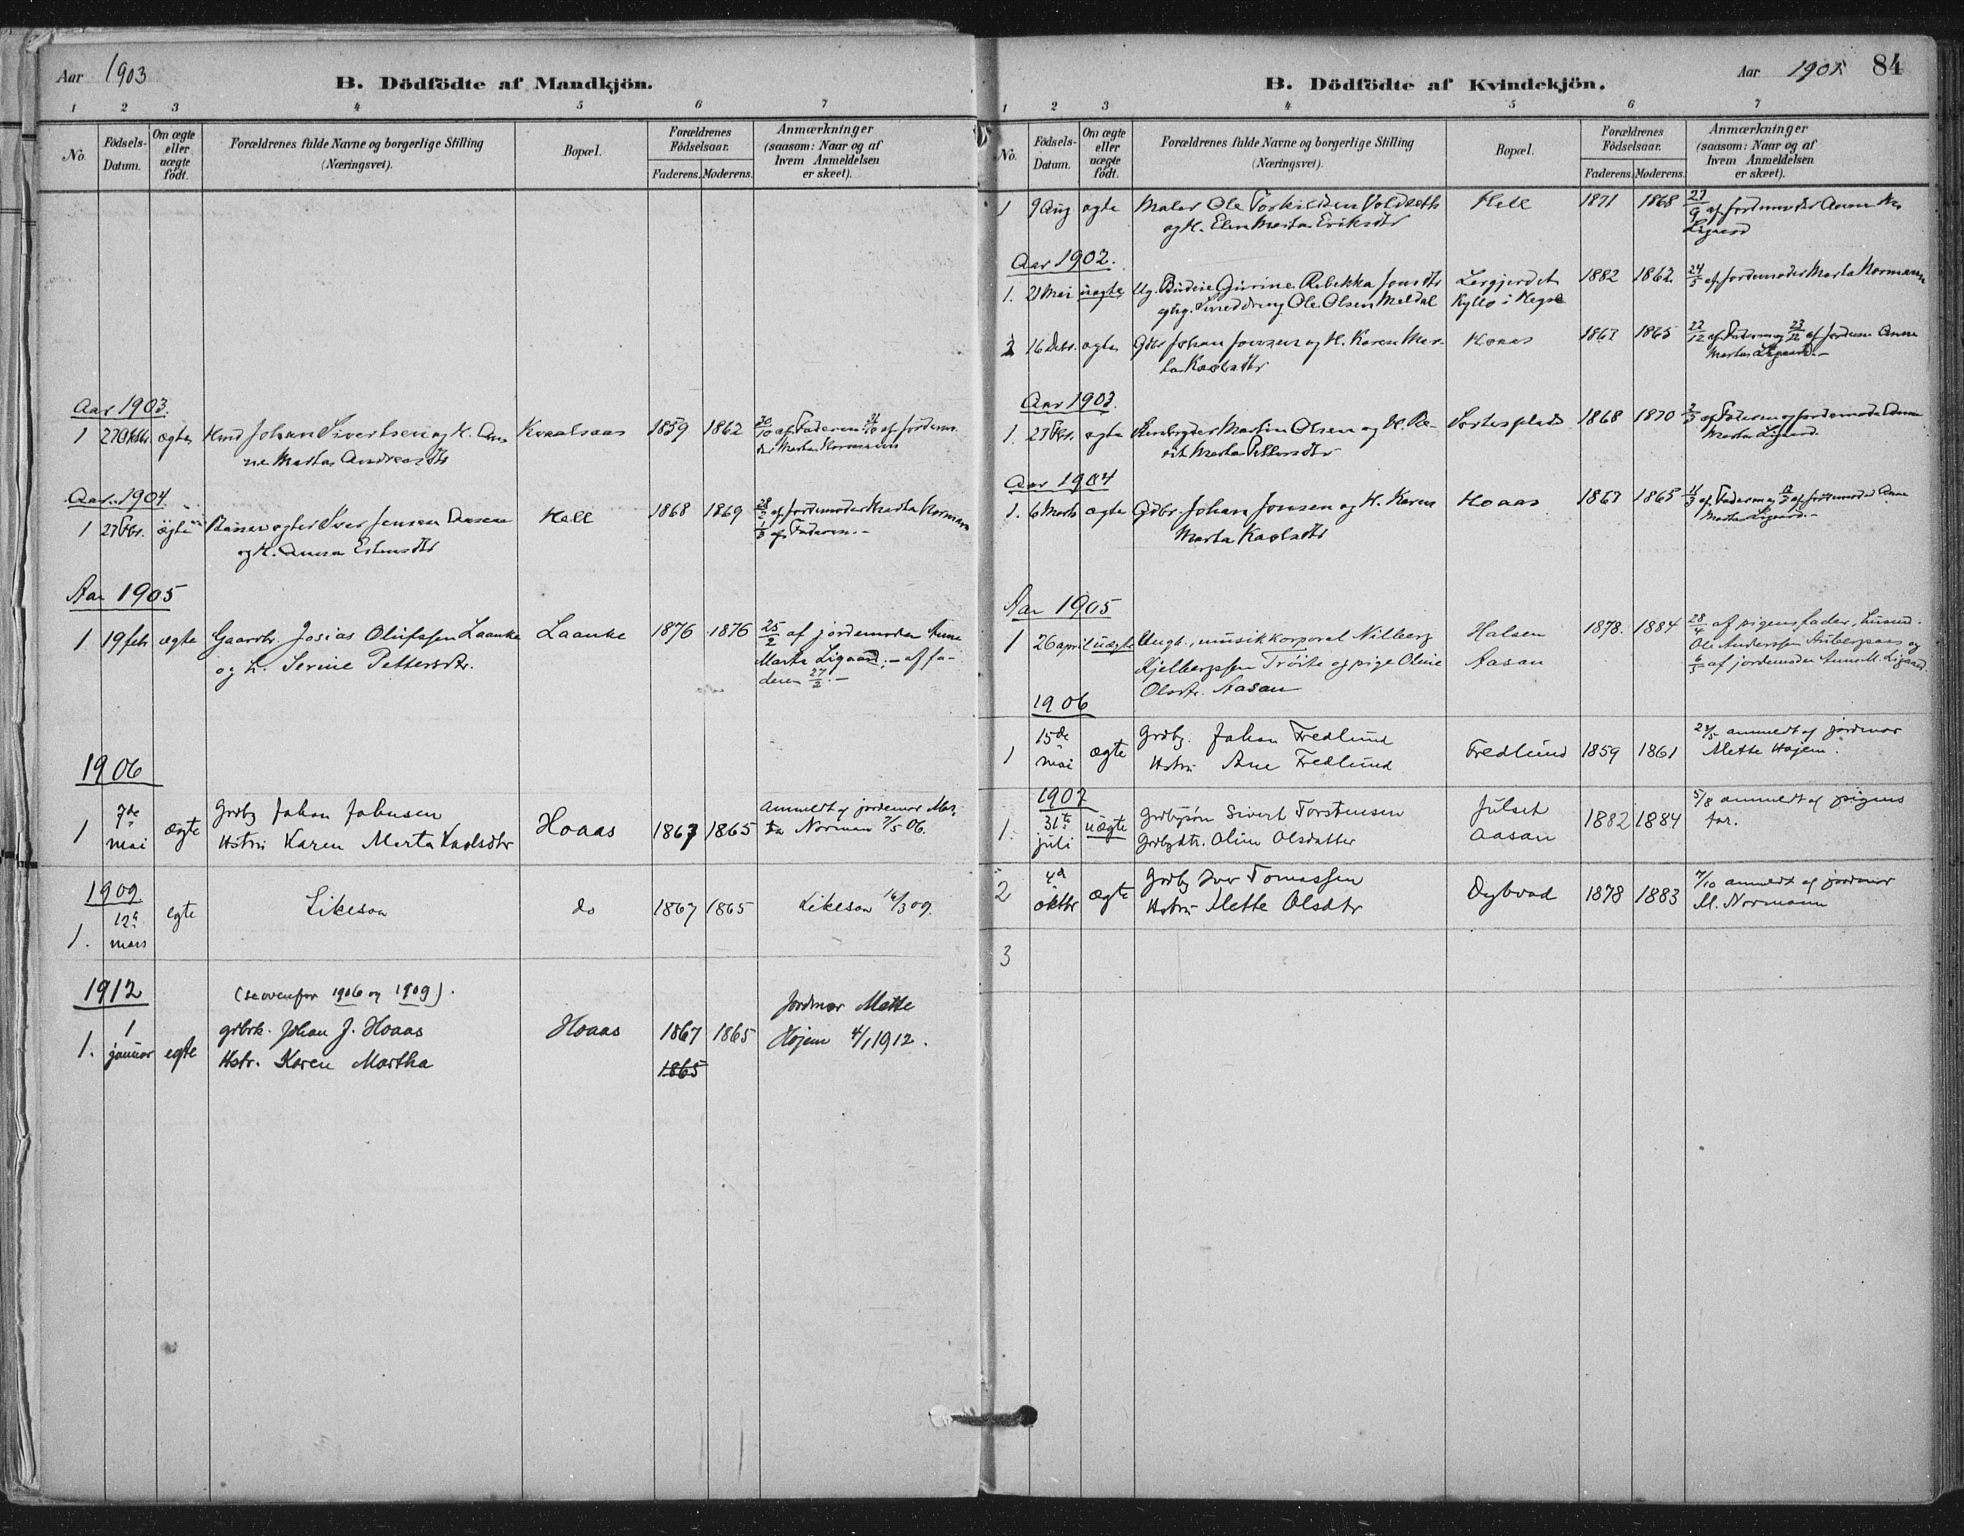 Aar 1903
B. Dödfödte af Mandkjön.
1 2 3 4 5 6 7
No. Födsels-Datum. Om ægte eller uægte födt. Forældrenes fulde Navne og borgerlige Stilling (Næringsvei). Bopæl. Forældrenes Födselsaar. Faderens. Moderens. Anmærkninger (saasom: Naar og af hvem Anmeldelsen er skeet).
Aar 1903.
1 27 Oktbr. ægte Johan Sivertsen og H. An- Kvaalsaas 1859 1862 30/10 af Faderen 31/10 af Jordem-
ne Marta Andreasdtr der Marta Normann
Aar 1904.
1 27 Fbr. ægte Iver Jensen Hell 1868 1869 28/2 af Jordemoder Marta Normann
og H. Anna Estensdtr 1/3 af Faderen.-
Aar 1905
1 19 febr ægte Gaardbr. Josias Olufssen Laanke Laanke 1876 1876 25/2 af jordemoder Anne
og h. Serine Pettersdtr. Marta Ligaard.- af fa-
deren 27/2.-
1906
1 7de mai ægte Grdbg Johan Johnsen Hoaas 1867 1865 Anmeldt af jordemor Mar-
Hstru Karen Marta Karlsdtr ta Norman 7/5 06.
1909
1. 12te mars egte Likesaa do 1867 1865 Likesaa 14/3 09.
1912 (se ovenfor 1906 og 1909).
1. 1 januar egte grbrk. Johan J. Hoaas Hoaas 1867 1865 Jordmor Mette
Hstr. Karen Martha 1865 Højem 4/1 1912.
Aar 1901. 84
B. Dödfödte af Kvindekjön.
1 2 3 4 5 6 7
No. Födsels-Datum. Om ægte eller uægte födt. Forældrenes fulde Navne og borgerlige Stilling (Næringsvei). Bopæl. Forældrenes Födselsaar. Faderens. Moderens. Anmærkninger (saasom: Naar og af hvem Anmeldelsen er skeet).
1 9 Aug ægte Maler Ole Torkildsen Voldseth Hell 1871 1868 27/9 af Jordemoder Anne Ma
og H. Elen Marta Eriksdtr Ligaard
Aar 1902.
1. 21 Mai uægte Ug. Budeie Gurine Rebekka Jonsdtr Lergjerdet 1882 1862 24/5 af Jordemoder Marta Normann
og Ug. Ole Olsen Meldal Kyllo i Hegre
2 16 Debr. ægte Gbr Johan Jonsen og H. Karen Mar- Hoaas 1867 1865 22/12 af Faderen og 23/12 af Jordem Anne
ta Karlsdtr Marta Ligaard.-
Aar 1903.
1. 27 Fbr. ægte Martin Olsen og H. Be- 1868 1870 2/3 af Faderen og Jordemoder Anne
rit Marta Pettersdtr Marta Ligaard.
Aar 1904
1. 6 Marts ægte Gdbr. Johan Jonsen og H. Karen Hoaas 1867 1865 11/3 af Faderen og 12/3 af Jordemoder Anne
Marta Karlsdtr Marta Ligaard.-
Aar 1905
1 26 april uægte Ungk., musikkorporal Nilberg Halsen 1878. 1884 28/4 af pigens fader, husmd.
Kjelbergssen Trøite og pige Oline Aasan Ole Anderssen Aunbergsaas og
Olsdtr. Aasan 6/5 af jordemoder Anne M. Ligaard.
1906
1 15de mai ægte Grdbg. Johan Fredlund Fredlund 1859 1861 22/5 anmeldt af jordmor
Hstru Ane Fredlund Mette Højem.
1907
1. 31te juli uægte Grdbrsøn Sivert Torstensen Julset 1882 1884 5/8 anmeldt af pigens
Grdbgdtr. Oline Olsdatter Aasan far.
2 4d oktbr ægte Grdbg Iver Tomassen Dybvad 1878 1883 7/10 anmeldt af jordmor
Hstru Mette Olsdtr M. Normann
3